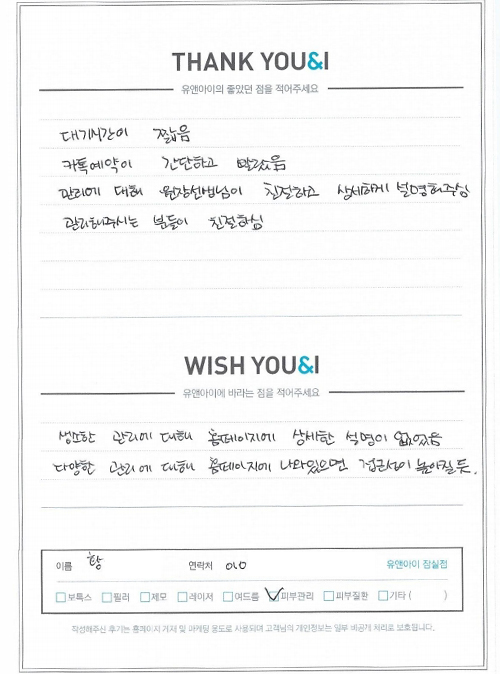 THANK YOU&I
유앤아이의 좋았던 점을 적어주세요
대기시간이 짧음
카톡예약이 간단하고 빨랐음
관리에 대해 원장선생님이 친절하고 상세하게 설명해주심
관리해주시는 분들이 친절하심
WISH YOU&I
유앤아이에 바라는 점을 적어주세요
생소한 관리에 대해 홈페이지에 상세한 설명이 없었음
다양한 관리에 대해 홈페이지에 나와있으면 접근성이 높아질듯.
이름 황 연락처 010 유앤아이 잠실점
보톡스 필러 제모 레이저 여드름 피부관리 피부질환 기타 ( )
작성해주신 후기는 홈페이지 게재 및 마케팅 용도로 사용되며 고객님의 개인정보는 일부 비공개 처리로 보호됩니다.